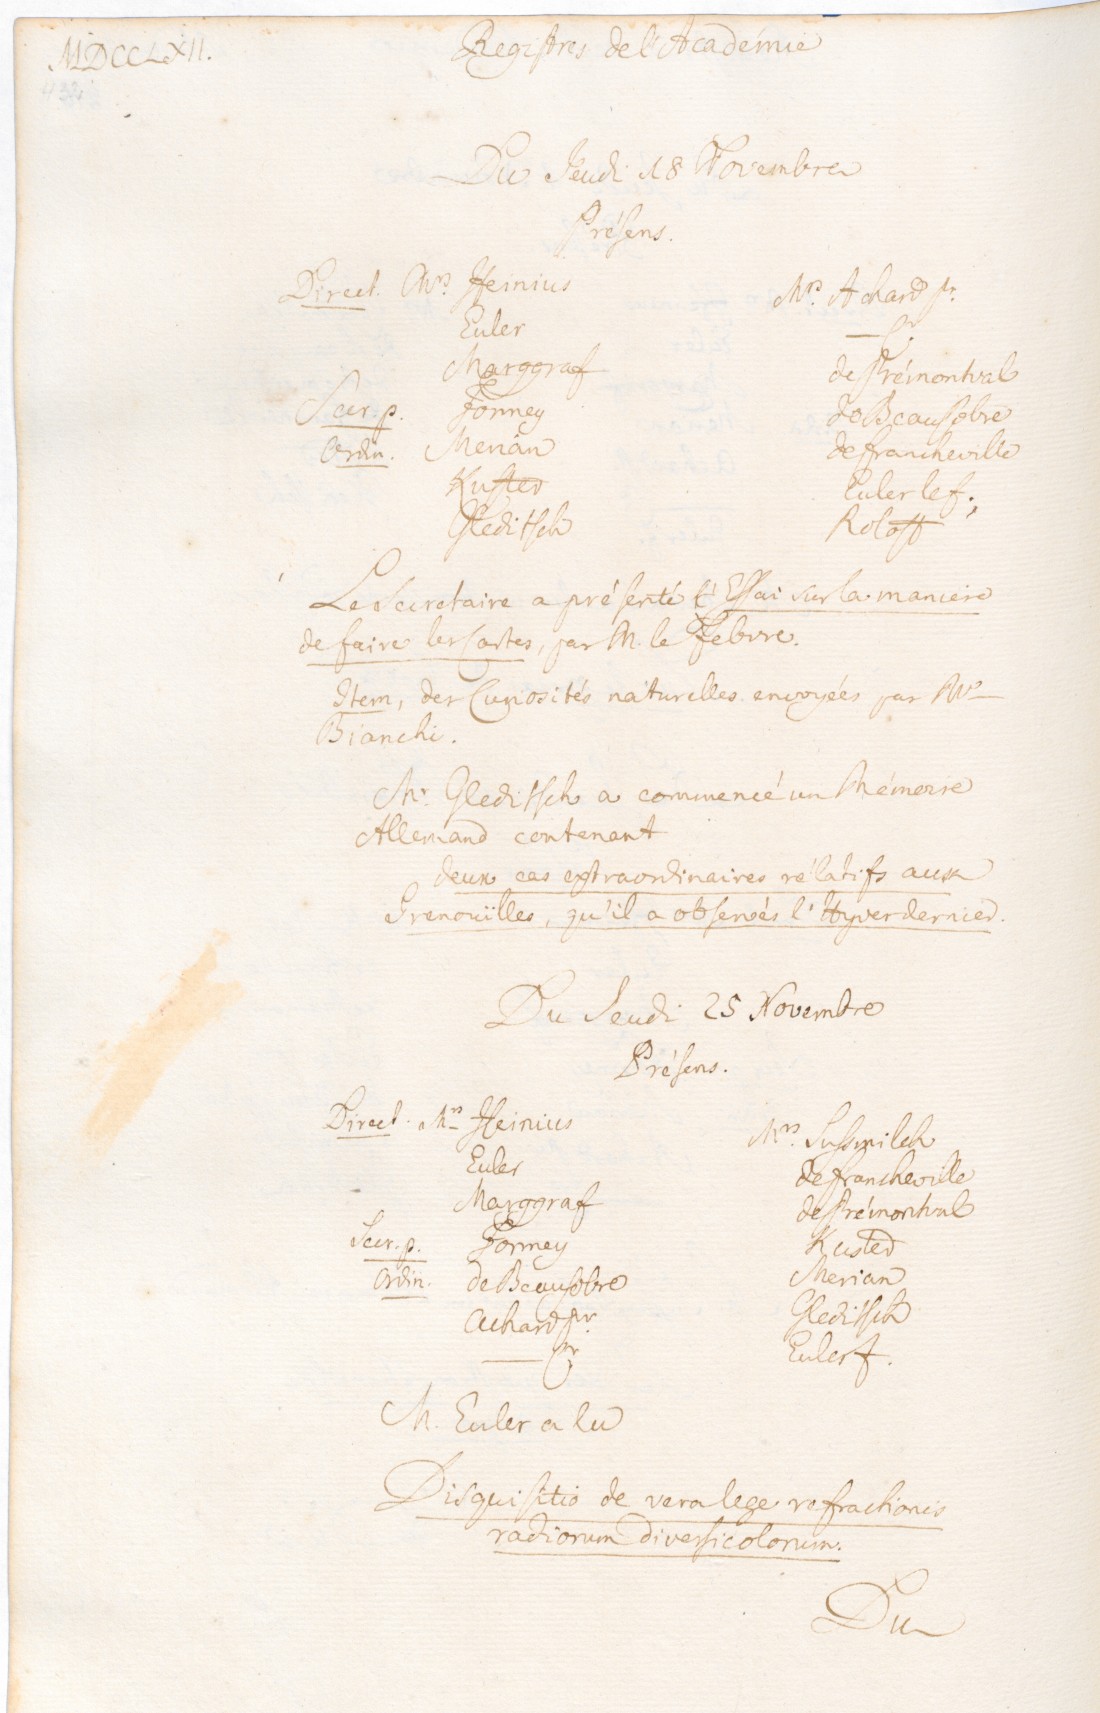 MDCCLXII.
Registres de l'Académie
Du Jeudi 18 Novembre
Présens.
Direct. Mrs. Heinius
Euler
Marggraf
Secr. p. Formey
Ordin. Merian
Kuster
Gleditsch
Mrs. Achard pr.
— Cr.
de Prémontval
de Beausobre
de francheville
Euler le f.
Roloff
Le Secretaire a présenté l'Essai sur la maniere
de faire les Cartes, par M. le Febvre.
Item, des Curiosités naturelles envoyées par Mr
Bianchi.
Mr. Gleditsch a commencé un Mémoire
Allemand contenant
deux cas extraordinaires rélatifs aux
Grenouïlles, qu'il a observés l'Hyver dernier.
Du Jeudi 25 Novembre
Présens.
Direct. Mrs Heinius
Euler
Marggraf
Secr. p. Formey
Ordin. de Beausobre
Achard pr.
— Cr.
Mrs. Sussmilch
de francheville
de Prémontval
Kuster
Merian
Gleditsch
Euler f.
M. Euler a lu
Disquisitio de vera lege refractionis
radiorum diversicolorum.
Du